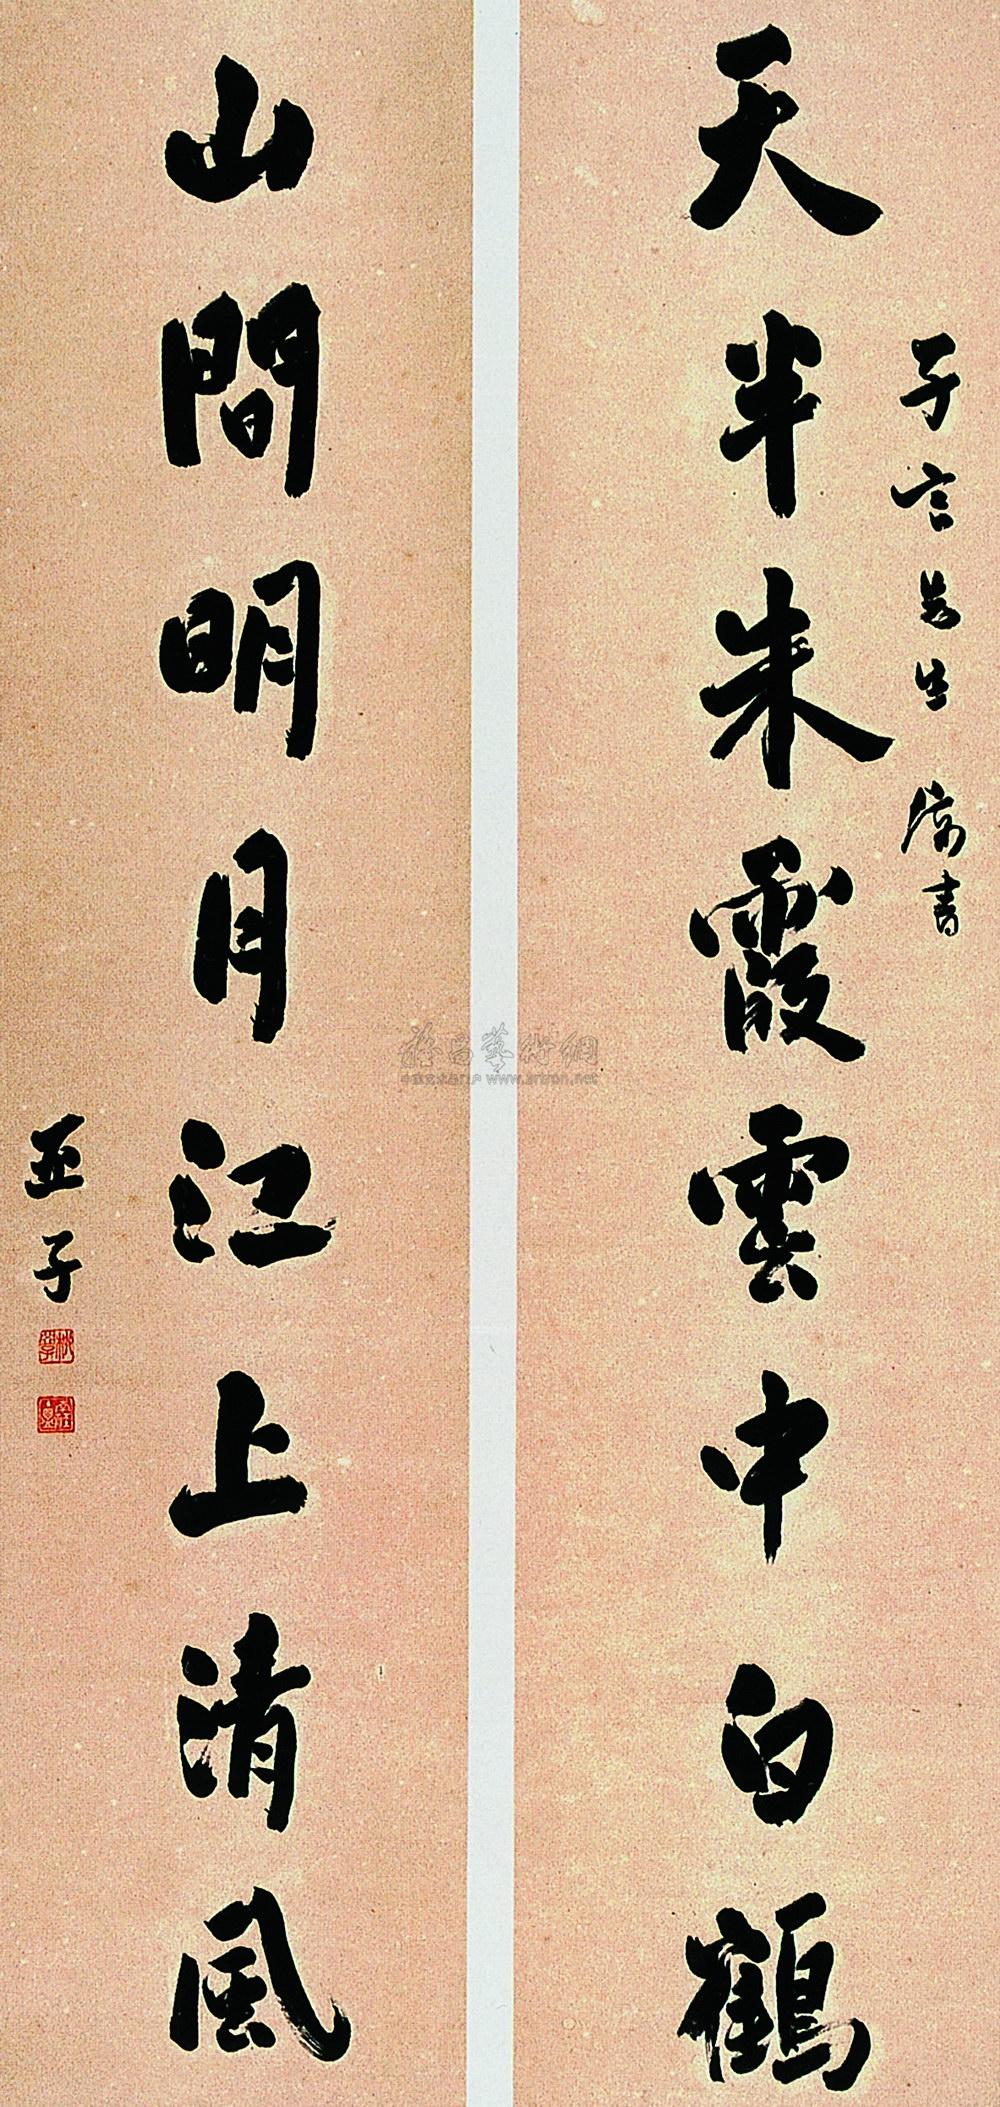 天半朱霞雲中白鶴
子言先生
書
山間明月江上清風
亚子
www.artron.net